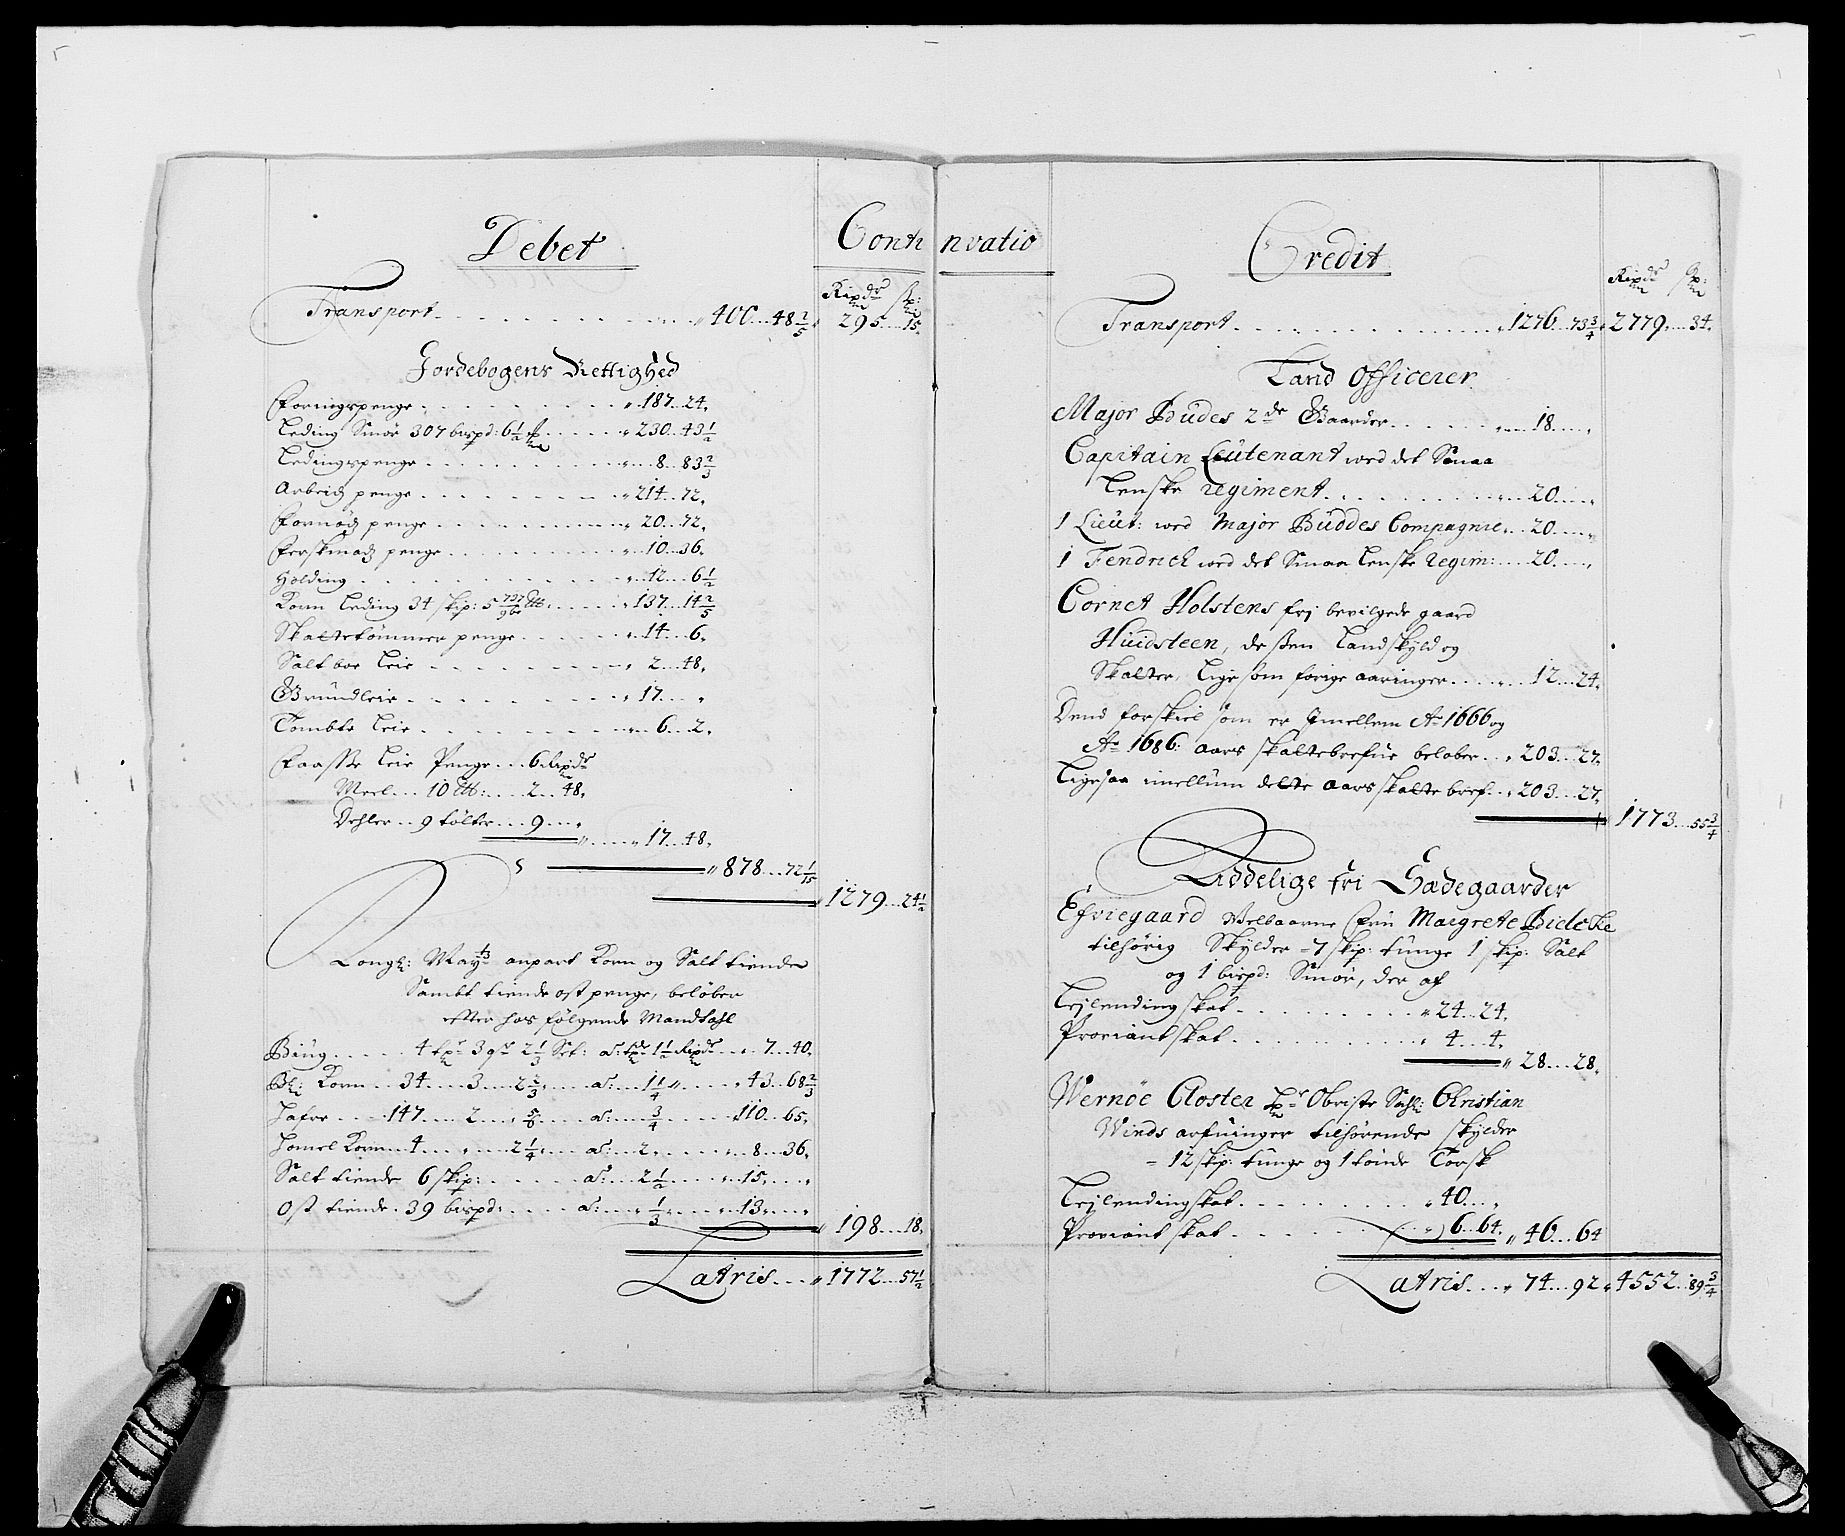 Debet
Continvatio
Rixdr sk:
Transport . . . 400 . . 48 2/5 295 . . 15.
Jordebogens Rettighed
Foringspenge . . . 187 . 24.
Leding Smör 307 bispd: 6 1/2 . . . 230 . . 43 1/2
Ledingspenge . . . 8 . . 83 2/3
Arbeidz penge . . . 214 . . 72.
Fornödz penge . . . 20 . . 72.
Ferskmadz penge . . . 10 . . 36.
Holding . . . 12 . . . 6 1/2
Korn Leding 34 skip: 5 737/960 . . . 137 . . 14 2/5
Skattetömmer penge . . . 14 . . . 6.
Salt boe Leie . . . 2 . . 48.
Grundleie . . . 17 . . .
Tombte Leie . . . 6 . . . 2.
Faasste Leie Penge . . . 6 Rixdr
Meel . . . 10 . . . 2 . . 48.
Dehler . . 9 tölter . . . 9 . . .
17 . . 48.
878 . . . 72 1/15
1279 . . . 24 1/2
Kongl: Mayts anpart Korn og Salt tiende
Sambt tiende ost penge, belöber
efter hos fölgende Mandtahl
Biug . . . 4 3 2 1/3 Set: a: 1 1/2 Rixdr . . 7 . . 40.
Bl: Korn . . . 34 . . . 3 . . . 2 2/3 . . . a: . . . 1 1/4 . . . 43 . . 68 2/3
Hafre . . . 147 . . . 2 . . . 5/6 . . . a: . . . 3/4 . . . 110 . . 65.
Homel Korn . . . 4 . . . 2 1/4 . . . a: . . . 2 . . . 8 . . . 36.
Salt tiende 6 skip: . . . a: . . . 2 1/2 . . . 15 . . .
Ost tiende . 39 bispd: . . . a: . . . 1/3 . . . 13 . . .
198 . . . 18.
Latris . . . 1772 . . 57 1/2
Credit
Rixdr sk:
Transport . . . 1276 . . 73 3/4 2779 . . . 34.
Land Officerer
Major Budes 2de Gaarder . . . 18 . . .
Capitain Leutenant wed det Smaa
Lenske regiment . . . 20 . . .
1 Lieut: wed Major Buddes Compagnie . . . 20 . . .
1 Fendrich wed det Smaa Lenske regim: . . . 20 . . .
Cornet Holstens frj bevilgede gaard
Huidsteen, dessen Landskyld og
Skatter, Lige som forige aaringer . . . 12 . . . 24.
Dend forskiel som er Jmellem Ao 1666 og
Ao 1686: aars skattebrefue belober . . . 203 . . 27.
Ligesaa imellum dette aars skatte bref . . 203 . . 27.
1773 . . . 55 3/4
Adelige fri Sædegaarder
Efviegaard Welbaarne fru Margrete Bielcke
tilhörig Skylder = 7 skip: tunge 1 skip: Salt
og 1 bispd: Smör, der af
Lejlending skat . . . 24 . . 24.
Proviant skat . . . 4 . . . 4.
28 . . . 28.
Wernöe Closter Obriste Sahl: Christian
Winds arfuinger tilhörende skylder
= 12 skip: tunge og 1 tönde Torsk
Lejlendingskat . . . 40 . . .
Proviant skat . . . 6 . . 64. 46 . . . 64
Latris . . . 74 . . . 92 4552 . . 89 3/4